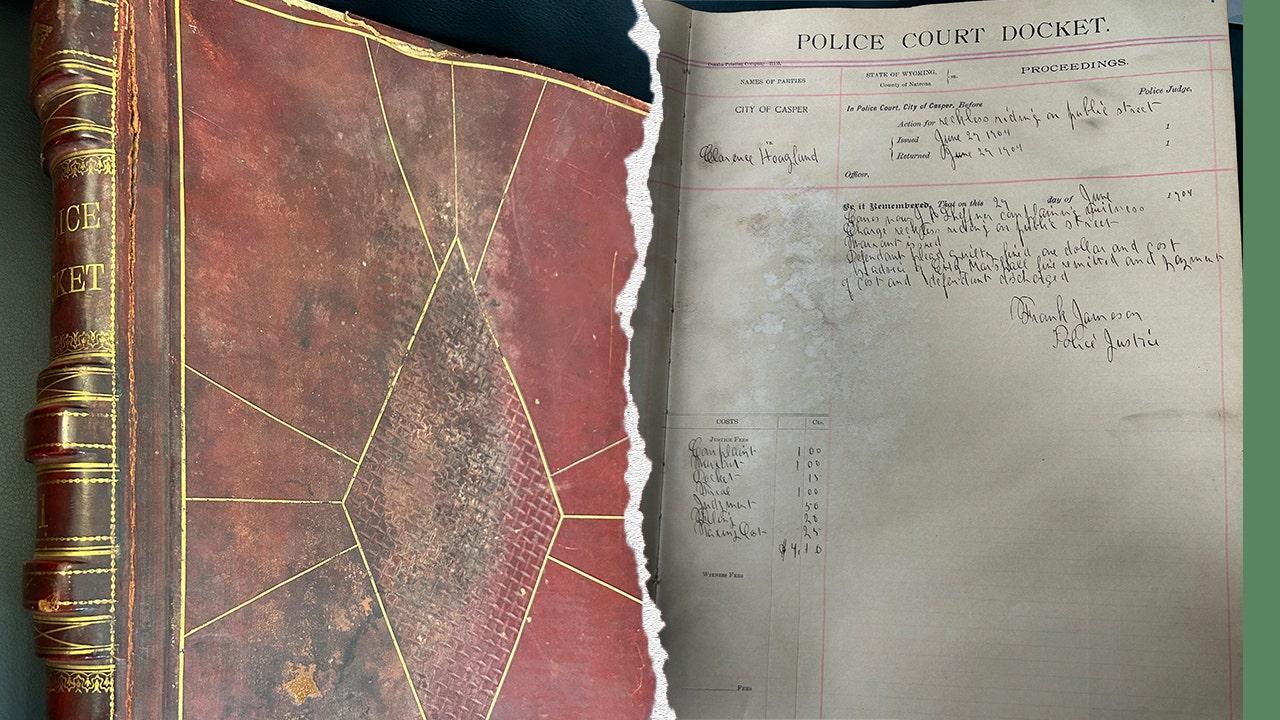 ICE
KET
1
POLICE COURT DOCKET.
NAMES OF PARTIES
STATE OF WYOMING,
County of Natrona
ss.
PROCEEDINGS.
CITY OF CASPER
vs.
Clarence Hoagland
In Police Court, City of Casper, Before
Police Judge,
Action for reckless riding on public street
Issued June 29 1904 1
Returned June 29 1904 1
Officer,
Be it Remembered, That on this 29 day of June 1904
Comes now J. complaining witness
Charge reckless riding on public street
Warrant issued
Defendant plead guilty fined one dollar and cost
advice of City Marshall fine remitted and payment
of cost and defendant discharged
Frank Jameson
Police Justice
COSTS Cts.
Justice Fees
Complaint 1 00
Warrant 1 00
Docket 15
Trial 1 00
Judgment 50
Filing 20
Taxing Cost 25
$ 4,10
Witness Fees
Fees